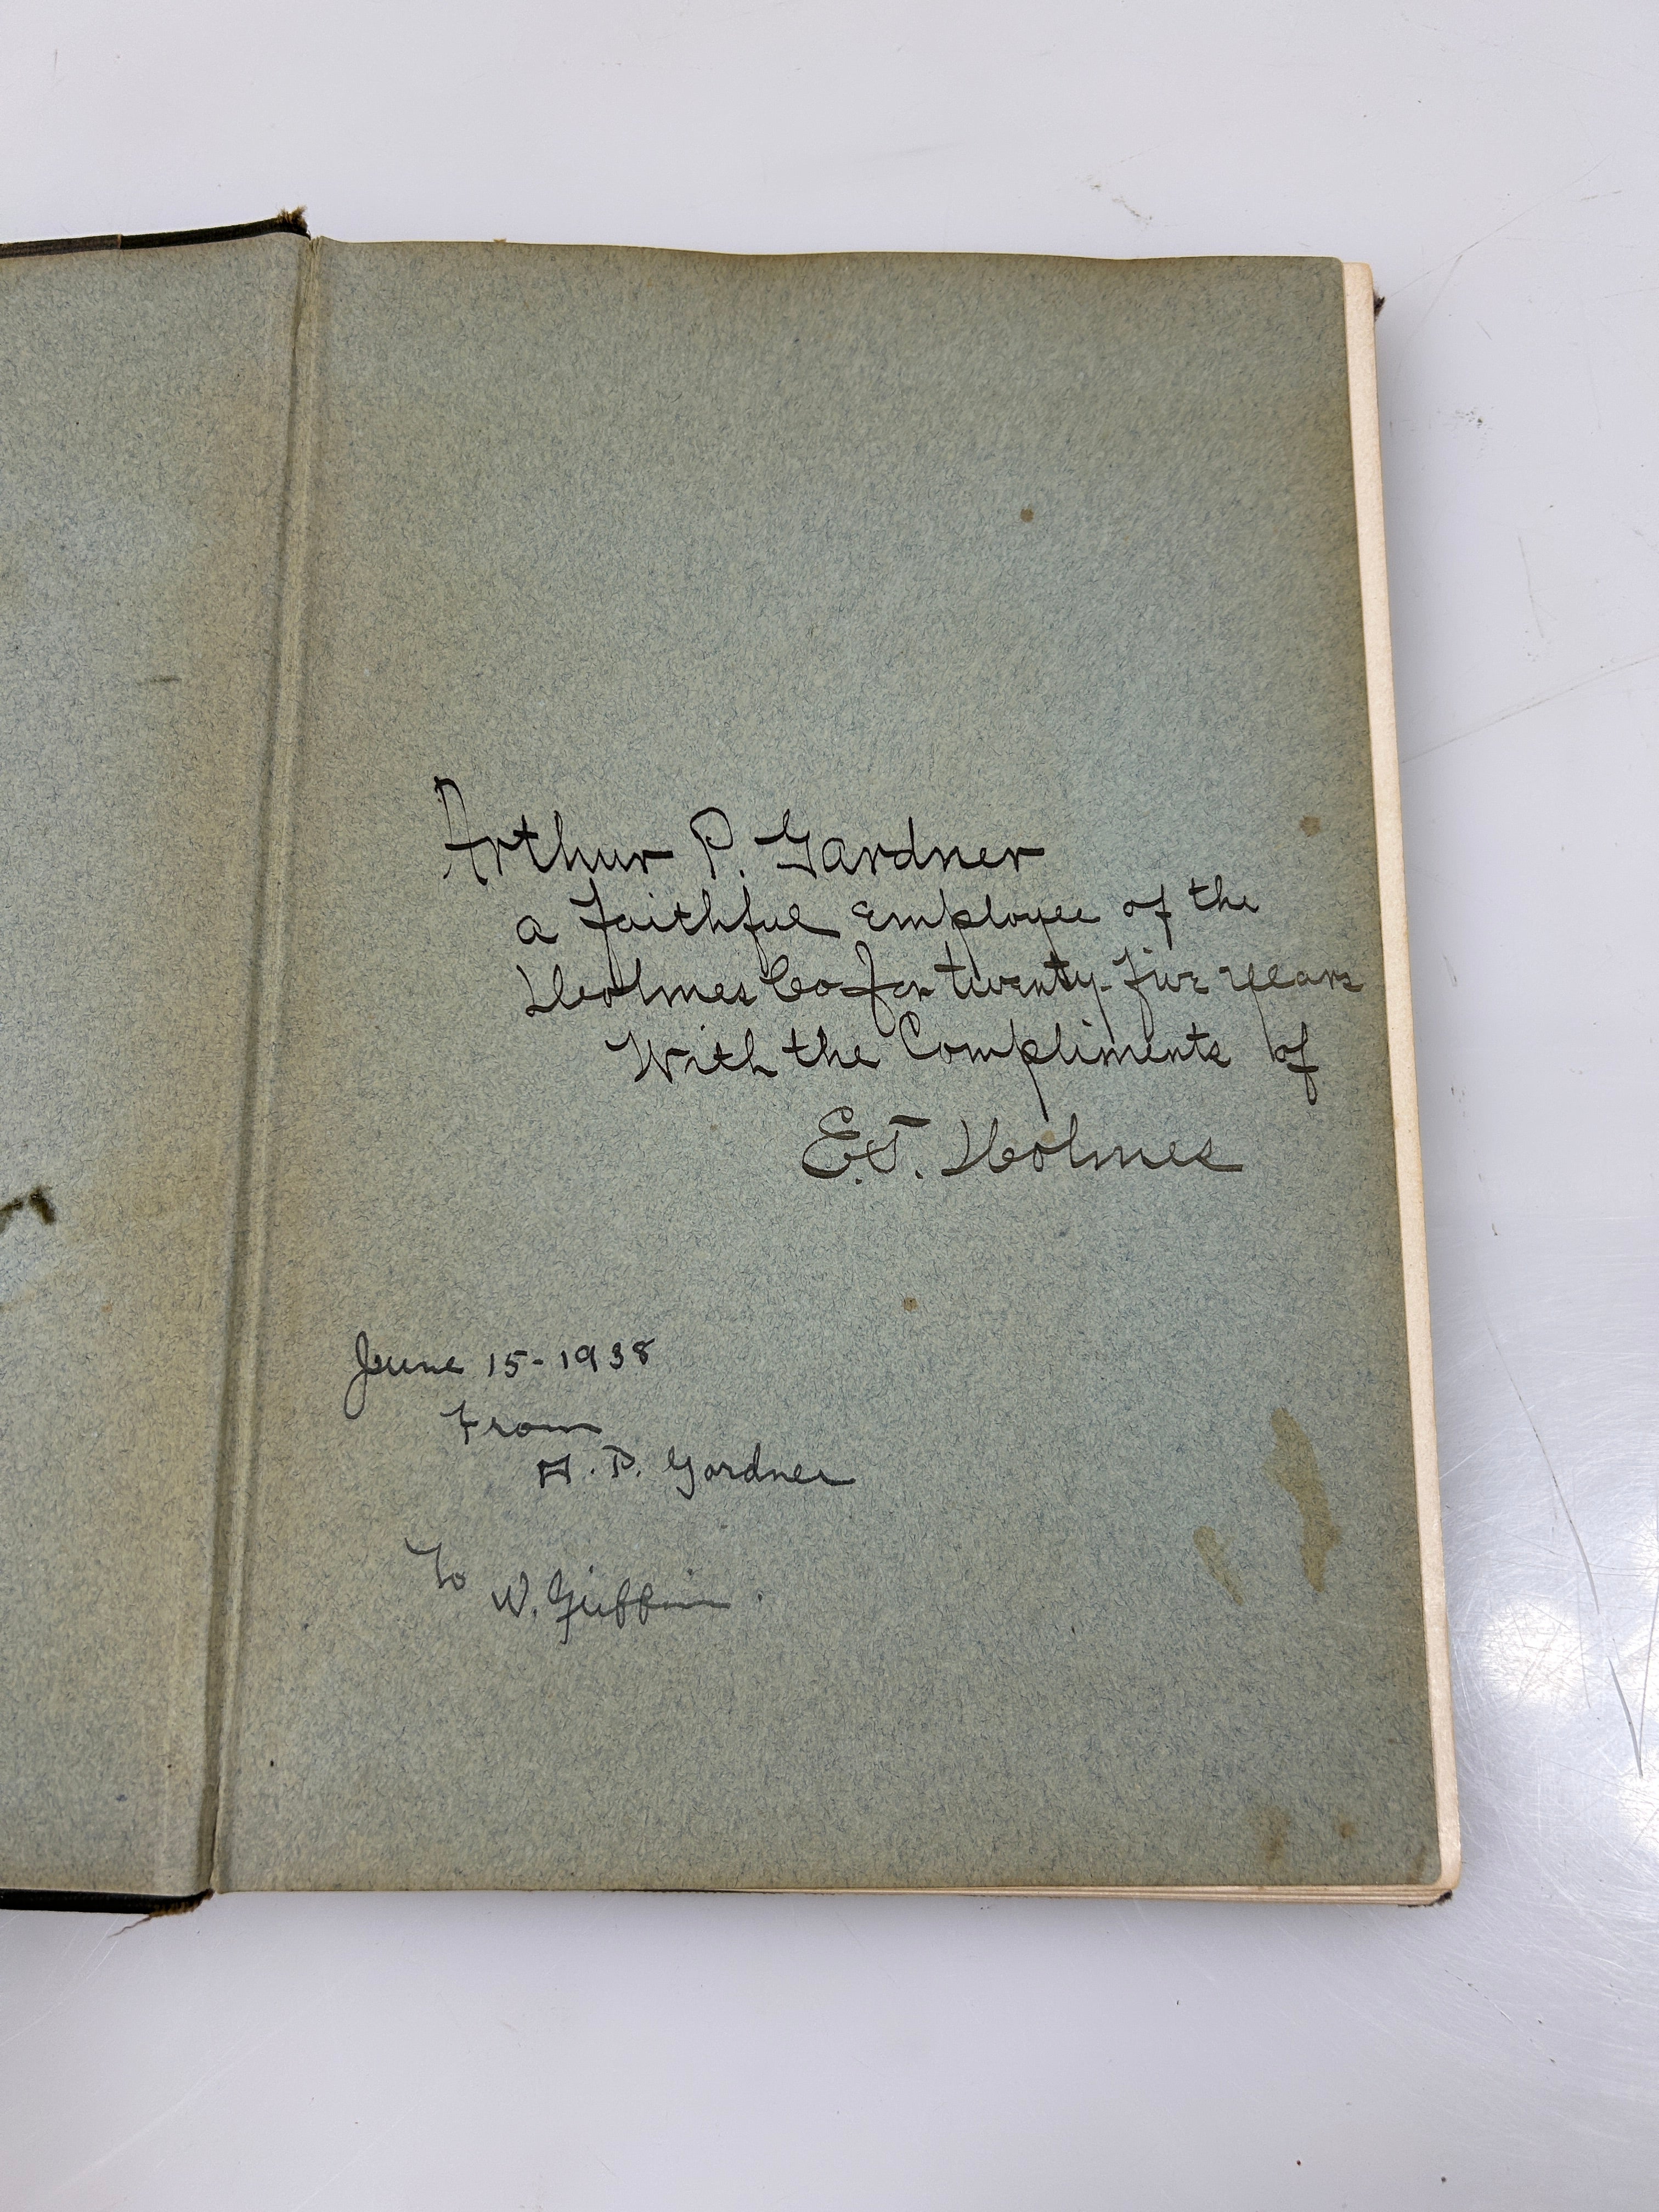 Arthur P. Gardner
a faithful Employee of the
Holmes Co for twenty-five years
With the Compliments of
E.T. Holmes
June 15-1938
From
A. P. Gardner
To
W. Griffin.